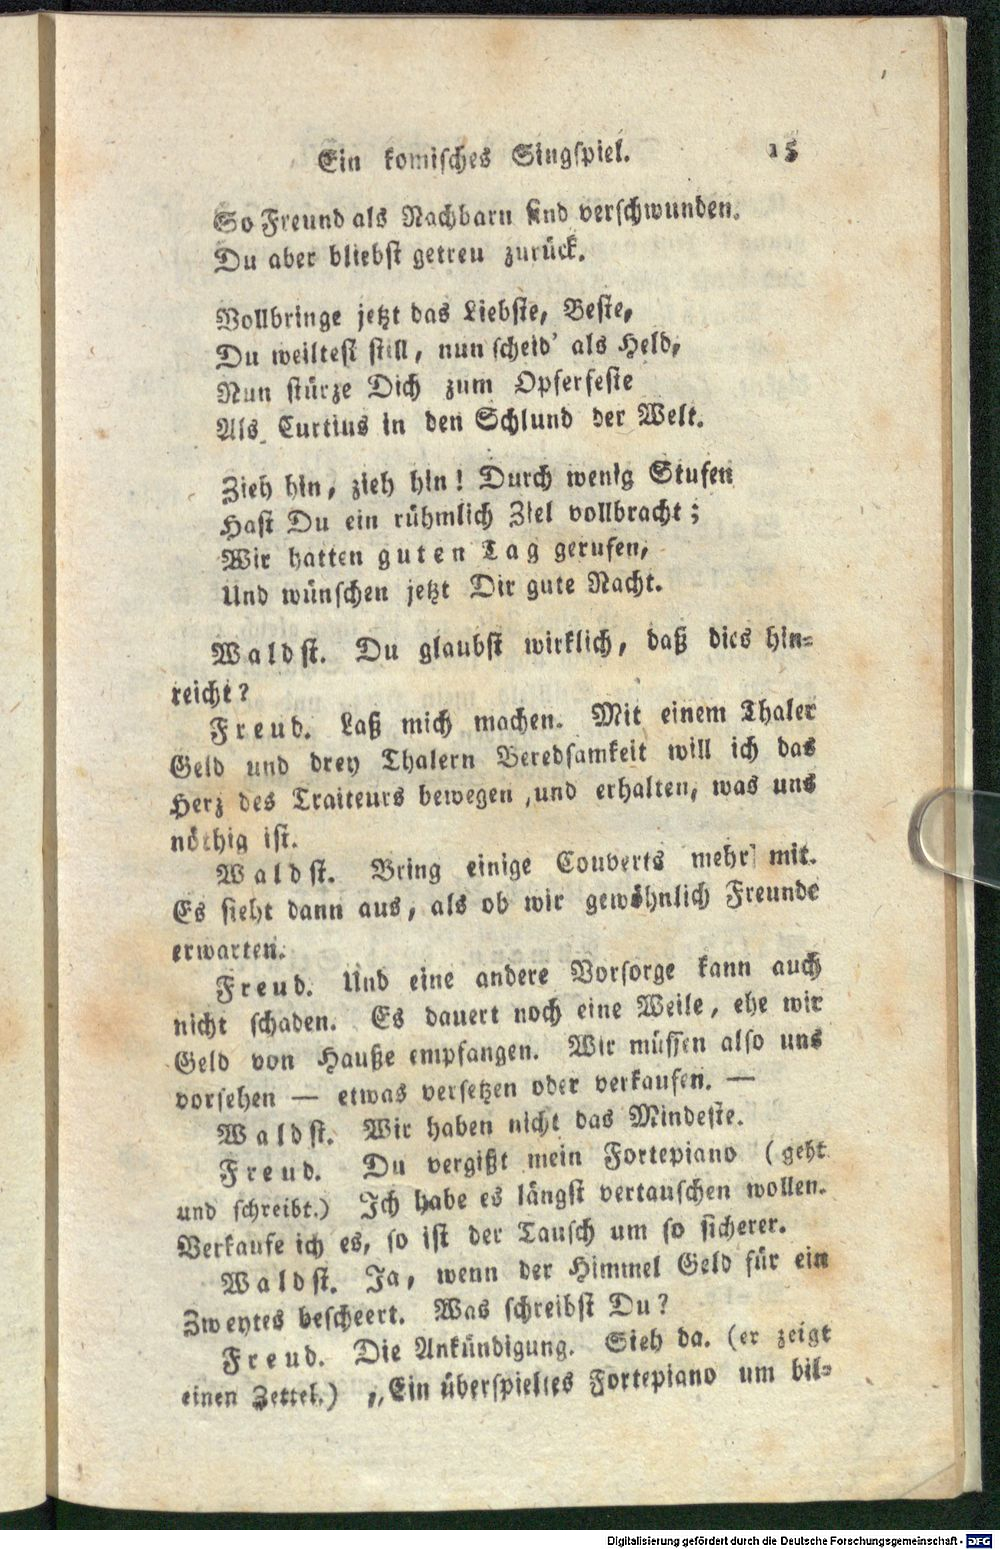 Ein komisches Singspiel. 15
So Freund als Nachbarn sind verschwunden.
Du aber bliebst getreu zurück.
Vollbringe jetzt das Liebste, Beste,
Du weiltest still, nun scheid' als Held,
Nun stürze Dich zum Opferfeste
Als Curtius in den Schlund der Welt.
Zieh hin, zieh hin! Durch wenig Stufen
Hast Du ein rühmlich Ziel vollbracht;
Wir hatten guten Tag gerufen,
Und wünschen jetzt Dir gute Nacht.
Waldst. Du glaubst wirklich, daß dies hin-
reicht?
Freud. Laß mich machen. Mit einem Thaler
Geld und drey Thalern Beredsamkeit will ich das
Herz des Traiteurs bewegen, und erhalten, was uns
nöthig ist.
Waldst. Bring einige Couverts mehr mit.
Es sieht dann aus, als ob wir gewöhnlich Freunde
erwarten.
Freud. Und eine andere Vorsorge kann auch
nicht schaden. Es dauert noch eine Weile, ehe wir
Geld von Hauße empfangen. Wir müssen also uns
vorsehen — etwas versetzen oder verkaufen. —
Waldst. Wir haben nicht das Mindeste.
Freud. Du vergißt mein Fortepiano (geht
und schreibt.) Ich habe es längst vertauschen wollen.
Verkaufe ich es, so ist der Tausch um so sicherer.
Waldst. Ja, wenn der Himmel Geld für ein
Zweytes bescheert. Was schreibst Du?
Freud. Die Ankündigung. Sieh da. (er zeigt
einen Zettel.) „Ein überspieltes Fortepiano um bil-
Digitalisierung gefördert durch die Deutsche Forschungsgemeinschaft - DFG